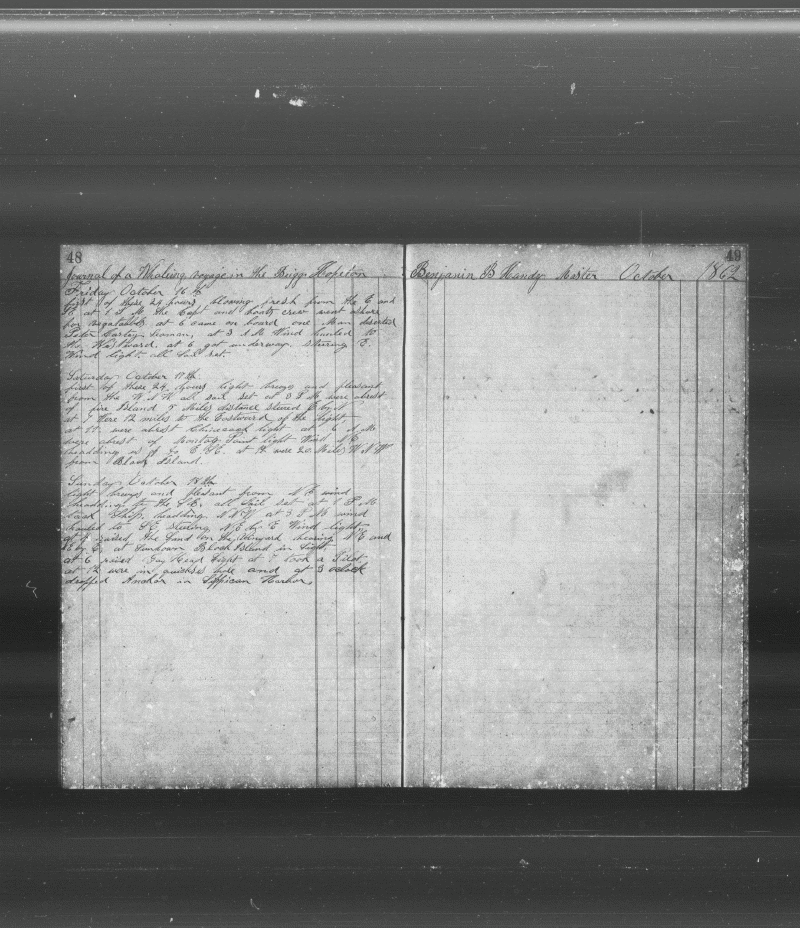 48
Journal of a Whaling voyage in the Brigg Hopeton
Friday October 16th
first of these 24 hours blowing fresh from the E and
at 1 P M the Capt and boats crew went ashore
for vegatables at 6 came on board one man deserted
Peter Carley seaman, at 3 A M Wind hauled to
the Westward at 6 got underway. stering E.
Wind light all sail set.
Saturday October 17th
first of these 24 hours light breys and pleasant
from the W N W all sail set at 3 P M were abrest
of fire Island 5 miles distance stered E by N
at 7 were 12 miles to the Eastward of the light
at 11 were abrest light at 6 A M
were abrest of Montag Point light Wind N E
heading of So E S E. at 12 were 20 Miles W N W
from Block Island.
Sunday October 18th
light breys and plesant from N E wind
heading to the S E. all sail set at 1 P M
tack Ship, heading N N W at 3 P M wind
hauled to S E stering N E by E Wind light
at 4 raised the Land
E by E, at Sundown Block Island in Sight
at 6 raised Gay Head light at 7 took a Pilot
at 12 were in and at 3 oclock
dropped Anchor in Sippican Harbor
49
Benjamin B Handy Master October 1862